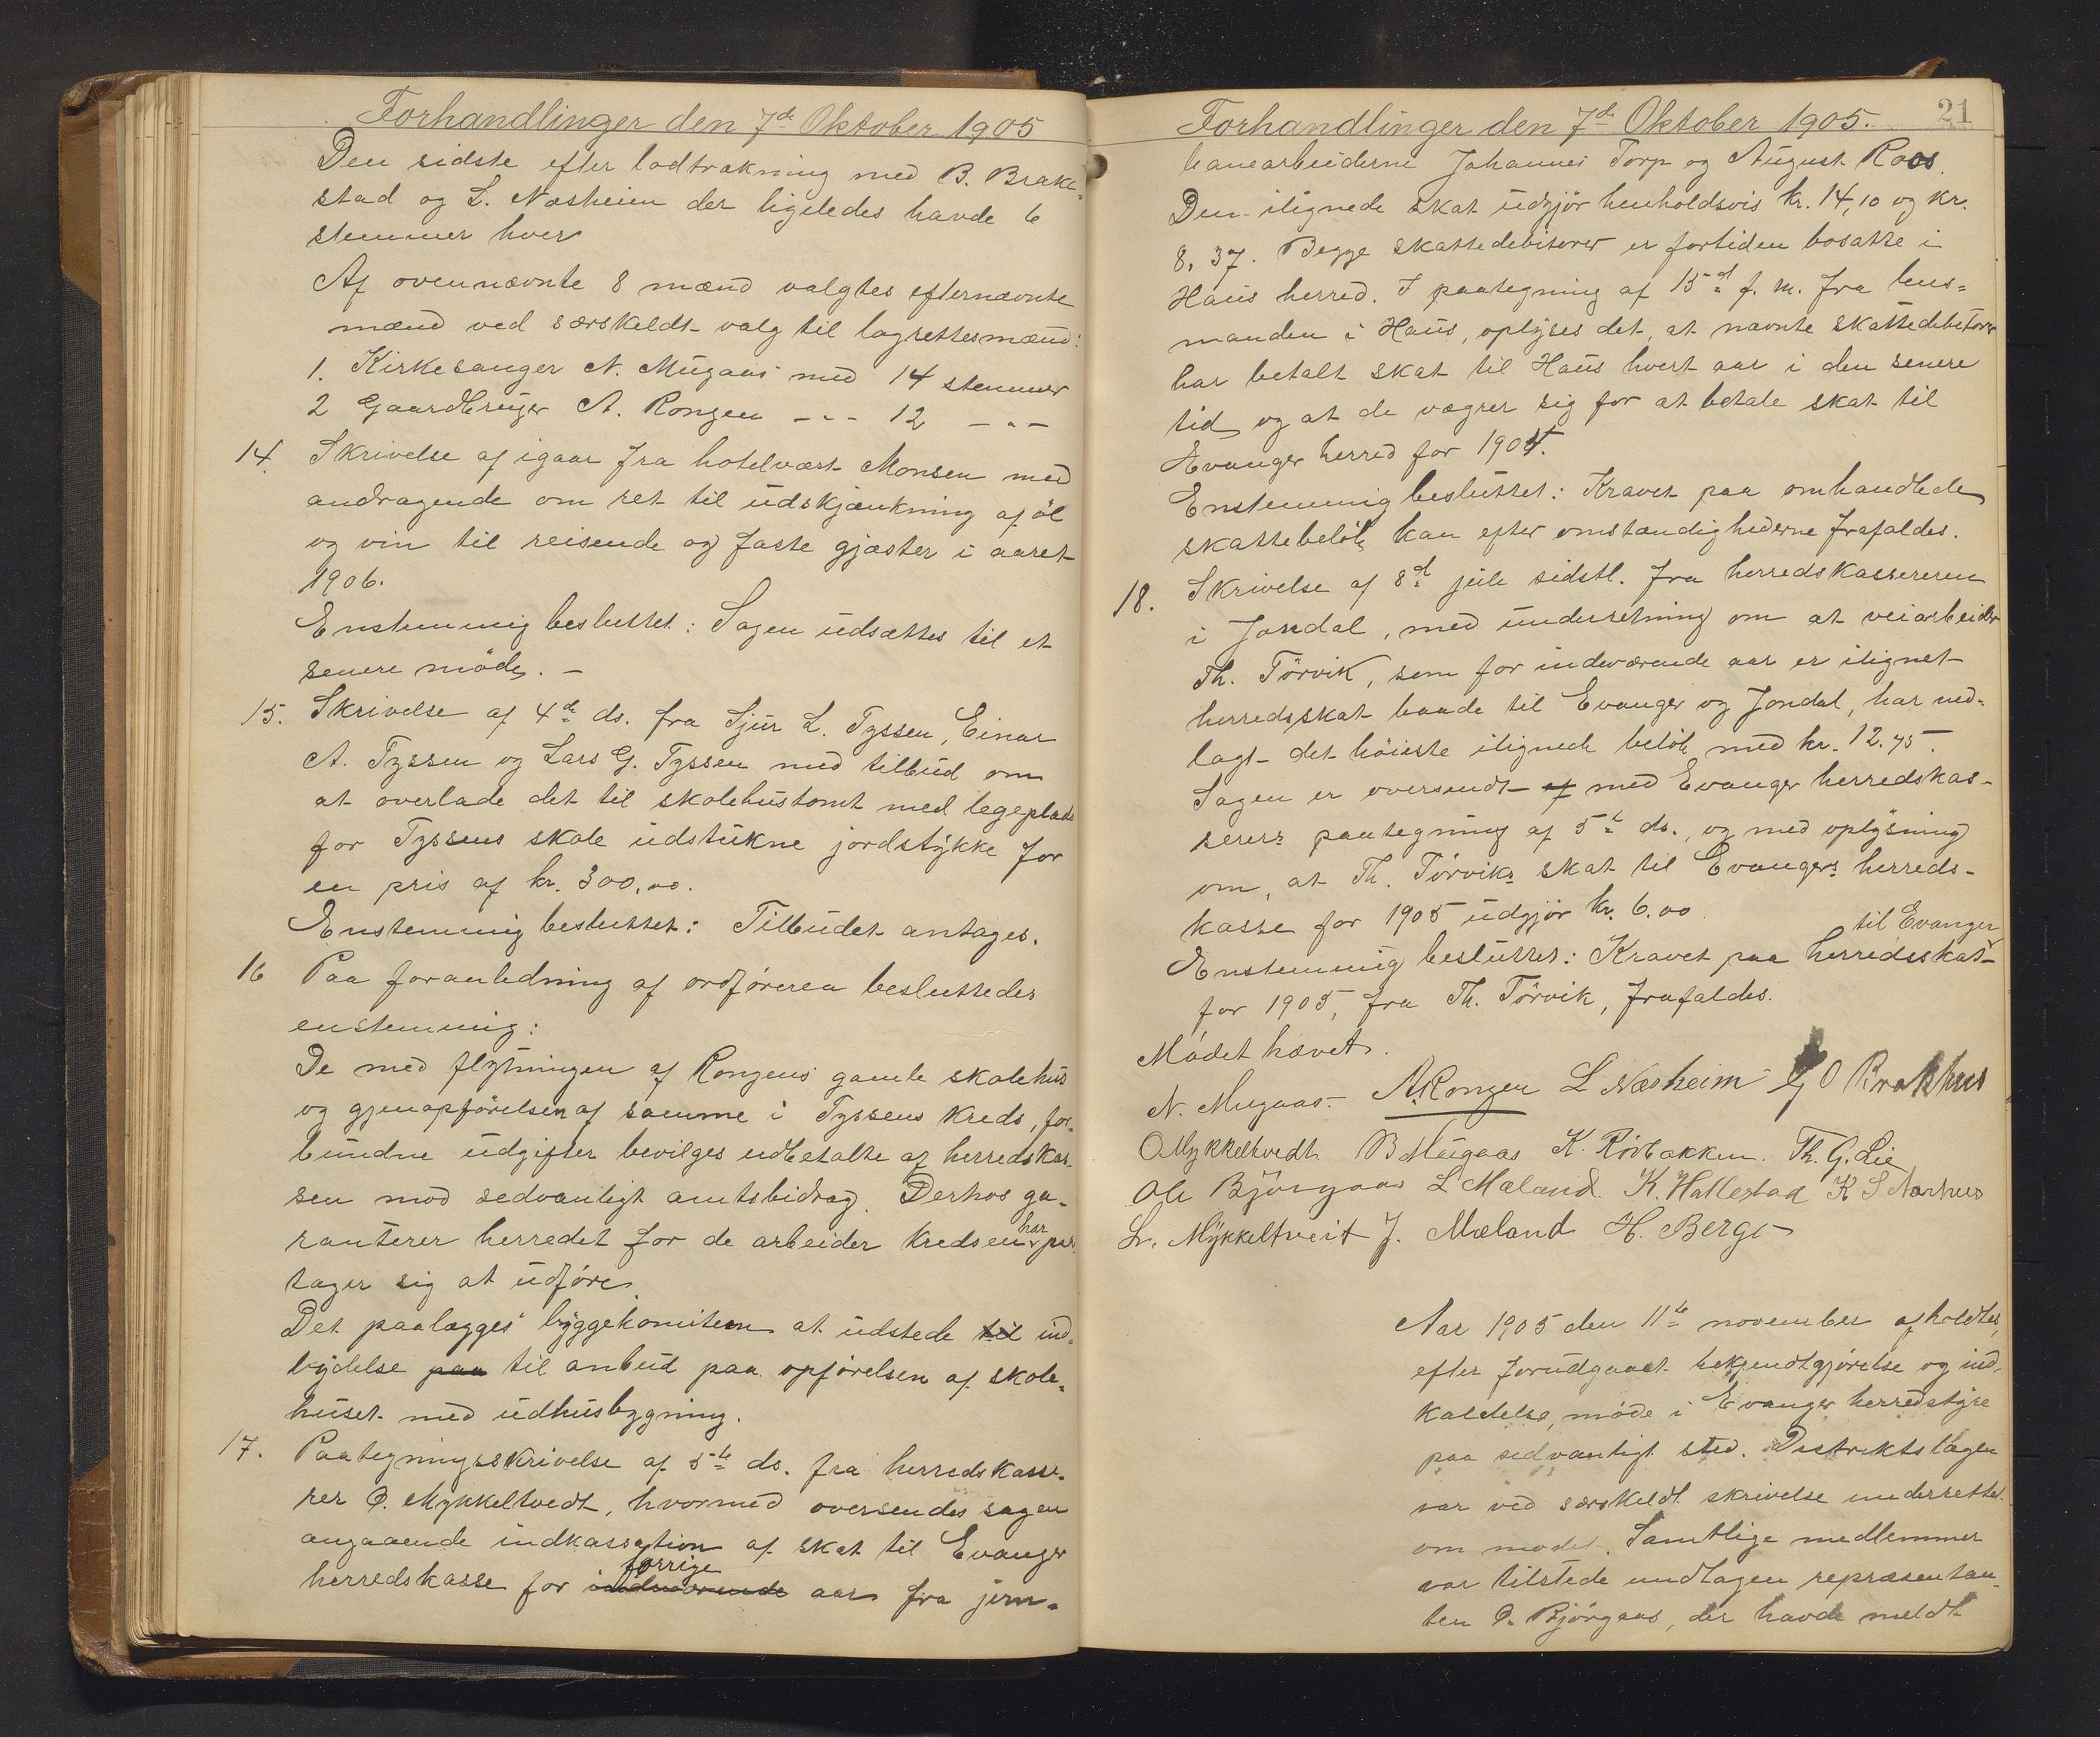 Forhandlinger den 7de Oktober 1905
Den sidste efter lodtrækning med B. Brake-
stad og L. Næsheim der ligeledes havde 6
stemmer hver
Af ovennævnte 8 mænd valgtes efternævnte
mænd ved særskeldt valg til lagrettesmænd:
1. Kirkesanger N. Mügaas med 14 stemmer
2 Gaardbruger A. Rongen --- 12 -"-
14. Skrivelse af igaar fra hotelvært Monsen med
andragende om ret til udskjænkning af öl
og vin til reisende og faste gjæster i aaret
1906.
Enstemmig besluttet: Sagen udsættes til et
senere möde. -
15. Skrivelse af 4de ds. fra Sjur L. Tyssen, Einar
A. Tyssen og Lars G. Tyssen med tilbud om
at overlade det til skolehustomt med legeplads
for Tyssens skole udstukne jordstykke for
en pris af kr. 300,00.
Enstemmig besluttet: Tilbudet antages.
16 Paa foranledning af ordføreren besluttedes
enstemmig:
De med flytningen af Rongens gamle skolehus
og gjenopførelsen af samme i Tyssens kreds, for-
bundne udgifter bevilges udbetalte af herredskas-
sen mod sedvanligt amtsbidrag. Derhos ga-
ranterer herredet for de arbeider kredsen har paa-
tager sig at udføre.
Det paalægges byggekomiteen at udstede til ind-
bydelse paa til anbud paa opførelsen af skole-
huset med udhusbygning.
17. Paategningsskrivelse af 5te ds. fra herredskasse-
rer O. Mykkeltvedt, hvormed oversendes sagen
angaaende indkassation af skat til Evanger
herredskasse for indeværende forrige aar fra jern-
Forhandlinger den 7de Oktober 1905. 21
banearbeiderne Johannes Torp og August Roos.
Den ilignede skat udgjör henholdsvis kr. 14,10 og kr.
8,37. Begge skattedebitorer er fortiden bosatte i
Haus herred. I paategning af 15d f. m. fra lens-
manden i Haus, oplyses det, at nævnte skattedebitorer
har betalt skat til Haus hvert aar i den senere
tid og at de vægrer sig for at betale skat til
Evanger herred for 1904.
Enstemmig besluttet: Kravet paa omhandlede
skattebelöb kan efter omstændighederne frafaldes.
18. Skrivelse af 8d juli sidstl. fra herredskassereren
i Jondal, med underretning om at veiarbeider
Th. Törvik, som for indeværende aar er ilignet
herredsskat baade til Evanger og Jondal, har ned-
lagt det höieste ilignede belöb med kr. 12.75.
Sagen er oversendt af med Evanger herredskas-
serers paategning af 5te ds., og med oplysning
om, at Th. Törviks skat til Evangers herreds-
kasse for 1905 udgjör kr. 6.00.
Enstemmig besluttet: Kravet paa herredsskat til Evanger
for 1905, fra Th. Törvik, frafaldes.
Mödet hævet.
N. Mugaas. A. Rongen L Næsheim G O Brakhus
O Mykkeltvedt B Mügaas K. Rörbakken. Th. G. Lie
Ole Björgaas L Mæland. K. Hallestad K S Aarhus
Lr. Mykkeltveit J. Mæland H. Berge
Aar 1905 den 11te november afholdtes,
efter forudgaaet bekjendtgjørelse og ind-
kaldelse, møde i Evanger herredstyre
paa sedvanligt sted. Distriktslægen
var ved særskildt skrivelse underrettet
om mødet. Samtlige medlemmer
var tilstede undtagen repræsentan-
ten O. Bjørgaas, der havde meldt